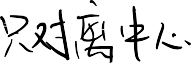 只对离中心